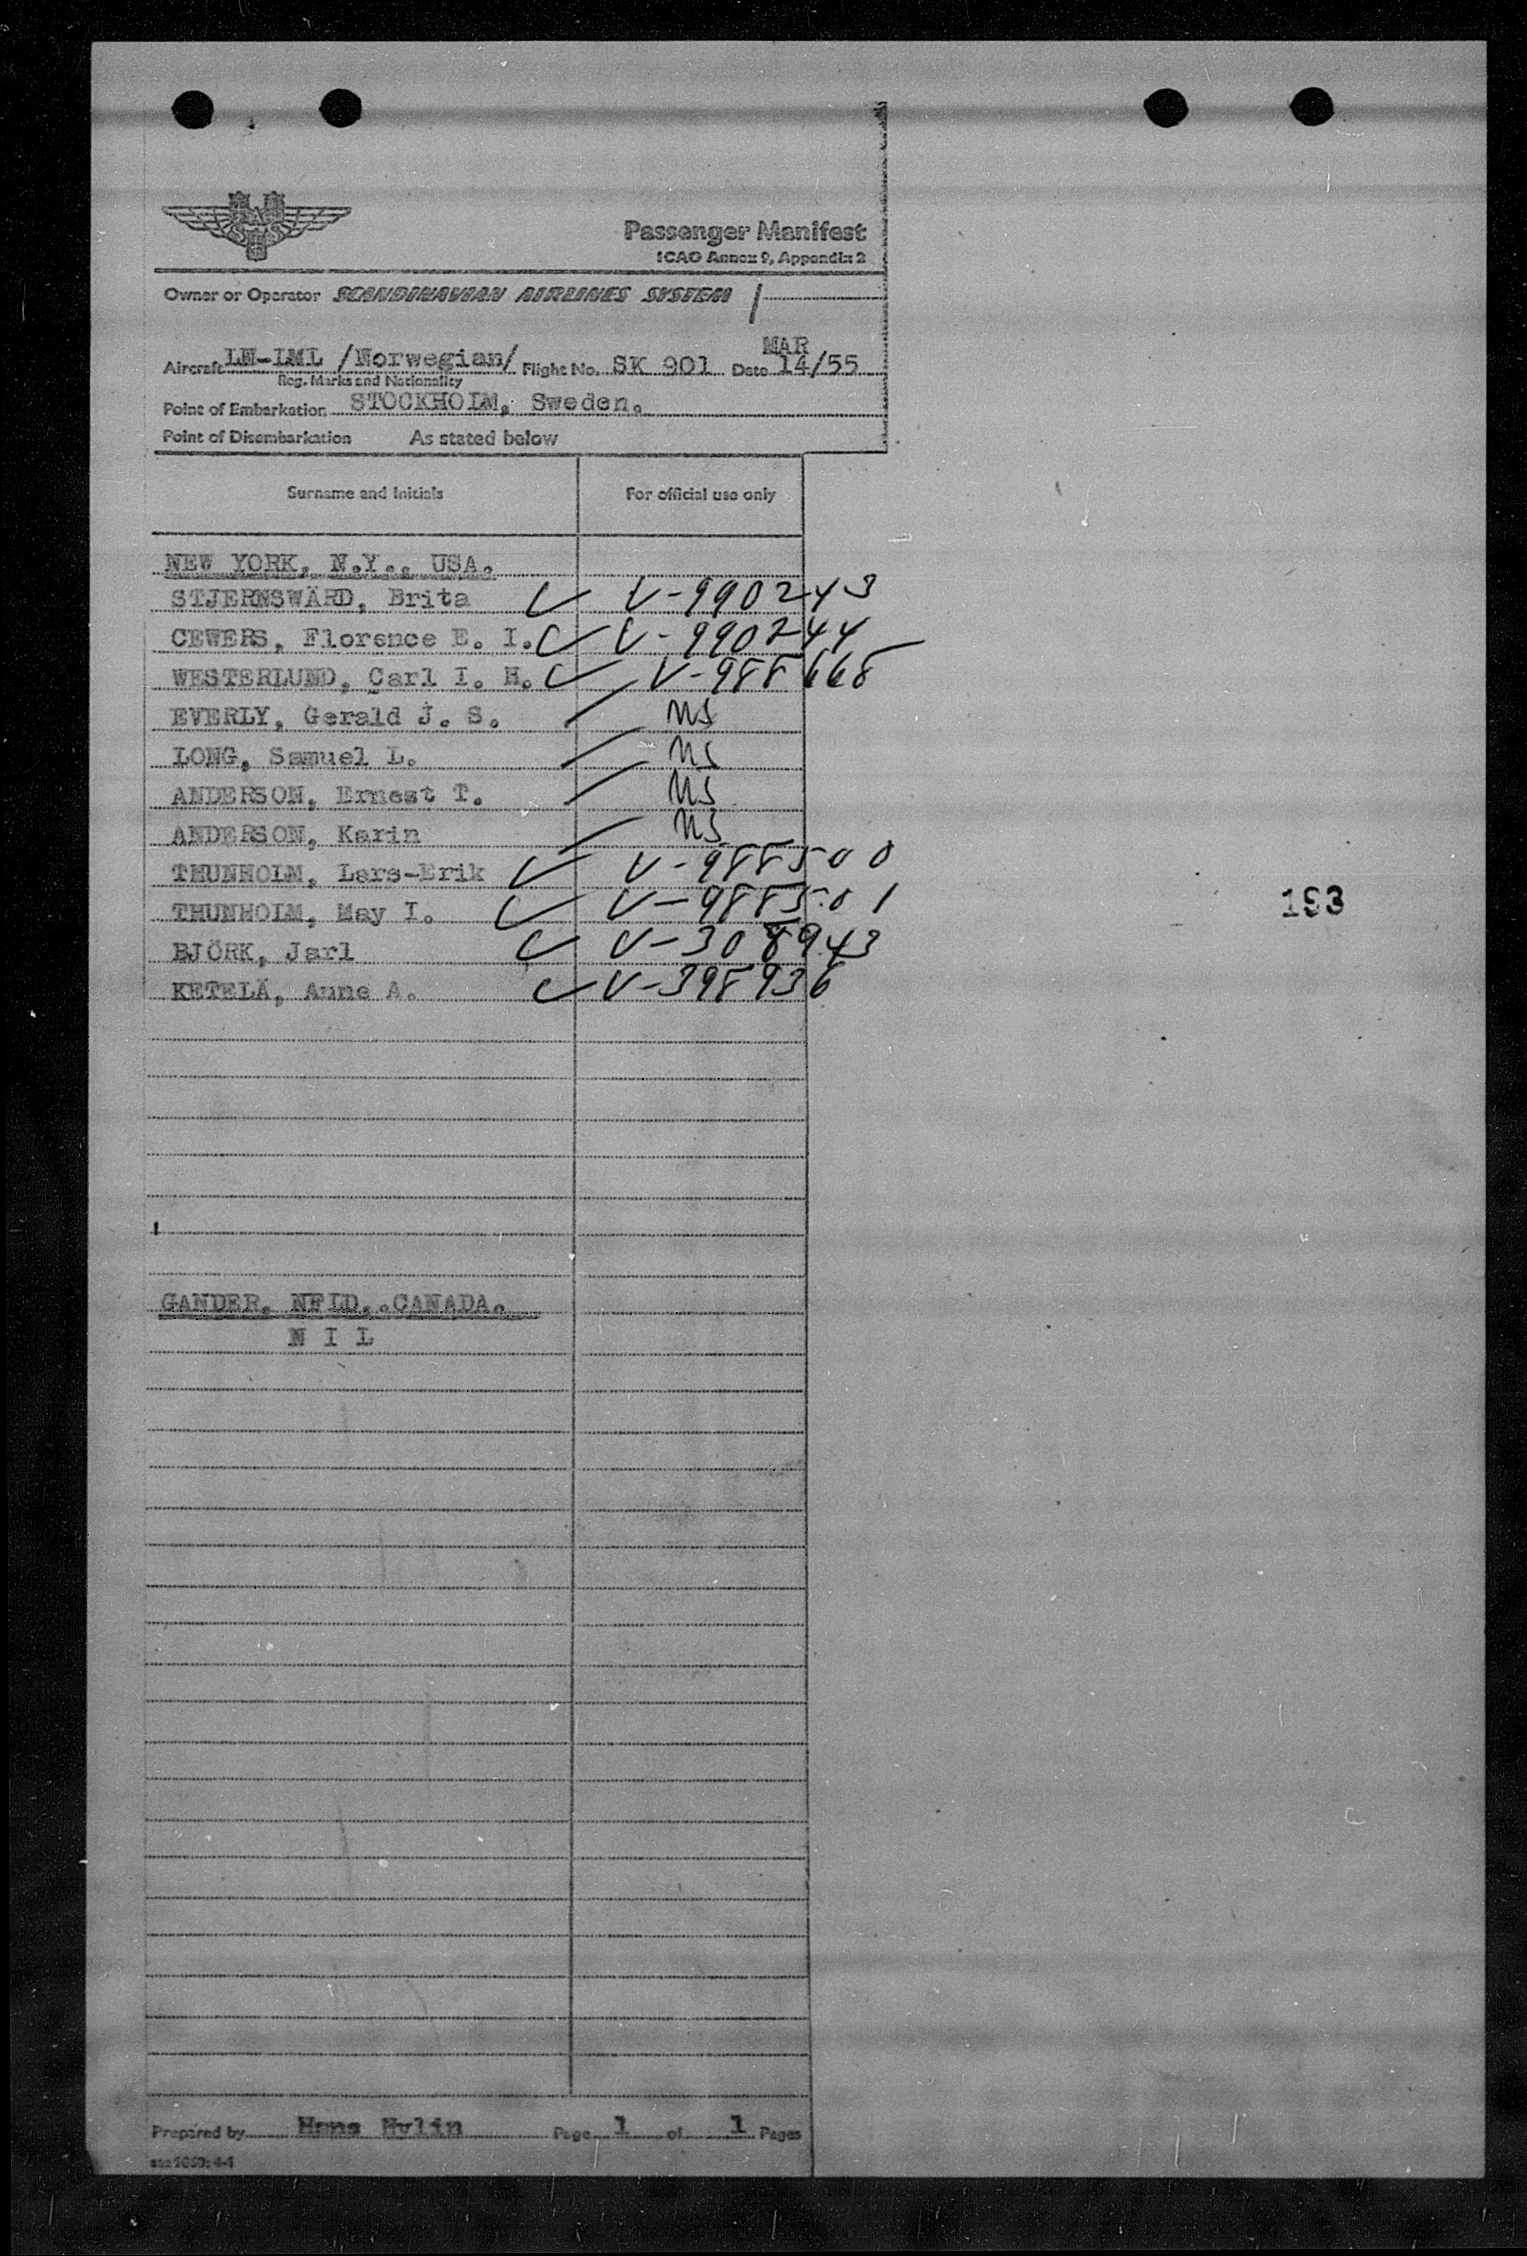 SAS
Passenger Manifest
ICAO Annex 9, Appendix 2
Owner or Operator SCANDINAVIAN AIRLINES SYSTEM /
Aircraft LN-LML /Norwegian/ Flight No. SK 901 Date MAR 14/55
Reg. Marks and Nationality
Point of Embarkation STOCKHOLM, Sweden.
Point of Disembarkation As stated below
Surname and Initials For official use only
NEW YORK, N.Y., USA.
STJERNSWÄRD, Brita V-990243
CEWERS, Florence E. I. V-990244
WESTERLUND, Carl I. H. V-988668
EVERLY, Gerald J. S. NS
LONG, Samuel L. NS
ANDERSON, Ernest T. NS
ANDERSON, Karin NS
THUNHOLM, Lars-Erik V-988500
THUNHOLM, May I. V-988501
193
BJÖRK, Jarl V-308943
KETELÄ, Aune A. V-398936
GANDER, NFLD,.CANADA.
N I L
Prepared by Hans Hylin Page 1 of 1 Pages